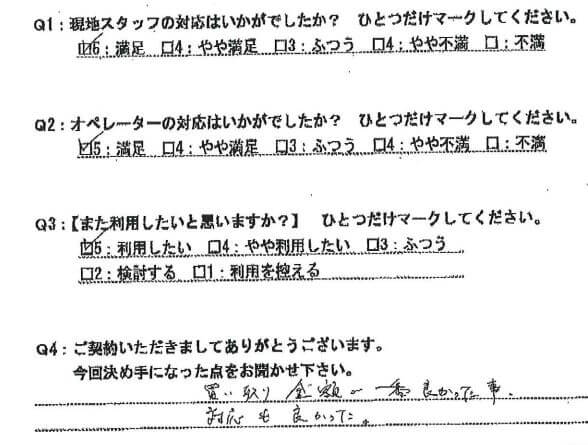 Q1：現地スタッフの対応はいかがでしたか？　ひとつだけマークしてください。
☑5：満足　□4：やや満足　□3：ふつう　□4：やや不満　□：不満
Q2：オペレーターの対応はいかがでしたか？　ひとつだけマークしてください。
☑5：満足　□4：やや満足　□3：ふつう　□4：やや不満　□：不満
Q3：【また利用したいと思いますか？】　ひとつだけマークしてください。
☑5：利用したい　□4：やや利用したい　□3：ふつう
□2：検討する　□1：利用を控える
Q4：ご契約いただきましてありがとうございます。
今回決め手になった点をお聞かせ下さい。
買い取り金額が一番良かった事。
対応も良かった。